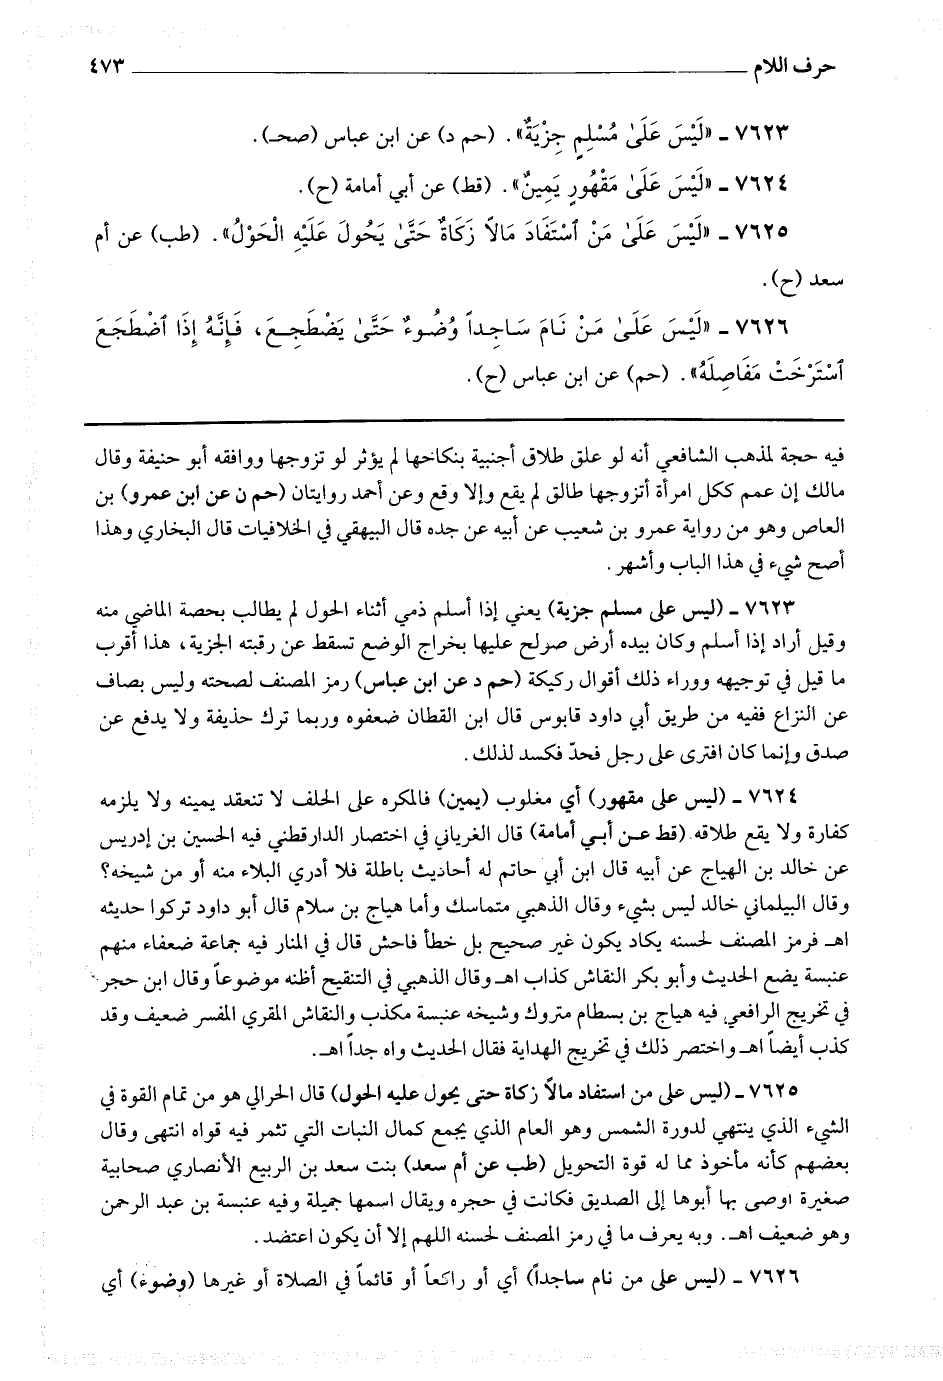 حرف اللام ــــــــــــــــــــــــــــــــــــ ٤٧٣
٧٦٢٣ ـ «لَيْسَ عَلَىٰ مُسْلِمٍ جِزْيَةٌ». (حم د) عن ابن عباس (صحـ).
٧٦٢٤ ـ «لَيْسَ عَلَىٰ مَقْهُورٍ يَمِينٌ». (قط) عن أبي أمامة (ح).
٧٦٢٥ ـ «لَيْسَ عَلَىٰ مَنْ ٱسْتَفَادَ مَالاً زَكَاةٌ حَتَّىٰ يَحُولَ عَلَيْهِ الْحَوْلُ». (طب) عن أم
سعد (ح).
٧٦٢٦ ـ «لَيْسَ عَلَىٰ مَنْ نَامَ سَاجِداً وُضُوءٌ حَتَّىٰ يَضْطَجِعَ، فَإِنَّهُ إِذَا ٱضْطَجَعَ
ٱسْتَرْخَتْ مَفَاصِلَهُ». (حم) عن ابن عباس (ح).
فيه حجة لمذهب الشافعي أنه لو علق طلاق أجنبية بنكاحها لم يؤثر لو تزوجها ووافقه أبو حنيفة وقال
مالك إن عمم ككل امرأة أتزوجها طالق لم يقع وإلا وقع وعن أحمد روايتان (حم ن عن ابن عمرو) بن
العاص وهو من رواية عمرو بن شعيب عن أبيه عن جده قال البيهقي في الخلافيات قال البخاري وهذا
أصح شيء في هذا الباب وأشهر.
٧٦٢٣ ـ (ليس على مسلم جزية) يعني إذا أسلم ذمي أثناء الحول لم يطالب بحصة الماضي منه
وقيل أراد إذا أسلم وكان بيده أرض صولح عليها بخراج الوضع تسقط عن رقبته الجزية، هذا أقرب
ما قيل في توجيهه ووراء ذلك أقوال ركيكة (حم د عن ابن عباس) رمز المصنف لصحته وليس بصاف
عن النزاع ففيه من طريق أبي داود قابوس قال ابن القطان ضعفوه وربما ترك حذيفة ولا يدفع عن
صدق وإنما كان افترى على رجل فحدّ فكسد لذلك.
٧٦٢٤ ـ (ليس على مقهور) أي مغلوب (يمين) فالمكره على الحلف لا تنعقد يمينه ولا يلزمه
كفارة ولا يقع طلاقه (قط عـن أبـي أمامة) قال الغرياني في اختصار الدارقطني فيه الحسين بن إدريس
عن خالد بن الهياج عن أبيه قال ابن أبي حاتم له أحاديث باطلة فلا أدري البلاء منه أو من شيخه؟
وقال البيلماني خالد ليس بشيء وقال الذهبي متماسك وأما هياج بن سلام قال أبو داود تركوا حديثه
اهـ فرمز المصنف لحسنه يكاد يكون غير صحيح بل خطأ فاحش قال في المنار فيه جماعة ضعفاء منهم
عنبسة يضع الحديث وأبو بكر النقاش كذاب اهـ وقال الذهبي في التنقيح أظنه موضوعاً وقال ابن حجر
في تخريج الرافعي فيه هياج بن بسطام متروك وشيخه عنبسة مكذب والنقاش المقري المفسر ضعيف وقد
كذب أيضاً اهـ واختصر ذلك في تخريج الهداية فقال الحديث واه جداً اهـ.
٧٦٢٥ ـ (ليس على من استفاد مالاً زكاة حتى يحول عليه الحول) قال الحرالي هو من تمام القوة في
الشيء الذي ينتهي لدورة الشمس وهو العام الذي يجمع كمال النبات التي تثمر فيه قواه انتهى وقال
بعضهم كأنه مأخوذ مما له قوة التحويل (طب عن أم سعد) بنت سعد بن الربيع الأنصاري صحابية
صغيرة اوصى بها أبوها إلى الصديق فكانت في حجره ويقال اسمها جميلة وفيه عنبسة بن عبد الرحمن
وهو ضعيف اهـ. وبه يعرف ما في رمز المصنف لحسنه اللهم إلا أن يكون اعتضد.
٧٦٢٦ ـ (ليس على من نام ساجداً) أي أو راكعاً أو قائماً في الصلاة أو غيرها (وضوء) أي